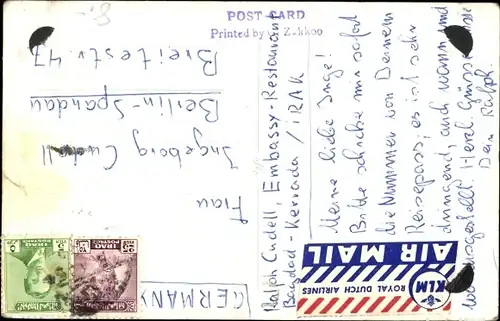 POST CARD
Printed by Zakkoo
Ralph Cudell, Embassy-Restaurant
Bagdad-Kerrada / IRAK
Meine liebe Inge!
Bitte schreibe mir sofort
die Nummer von Deinem
Reisepass, es ist sehr
dringend, auch wann und
wo ausgestellt. Herzl. Grüsse
Dein Ralph.
Frau
Ingeborg Cudell
Berlin-Spandau
Breitestr. 47
GERMANY
AIR MAIL
KLM
ROYAL DUTCH AIRLINES
IRAQ
POSTAGE
IRAQ
POSTAGE